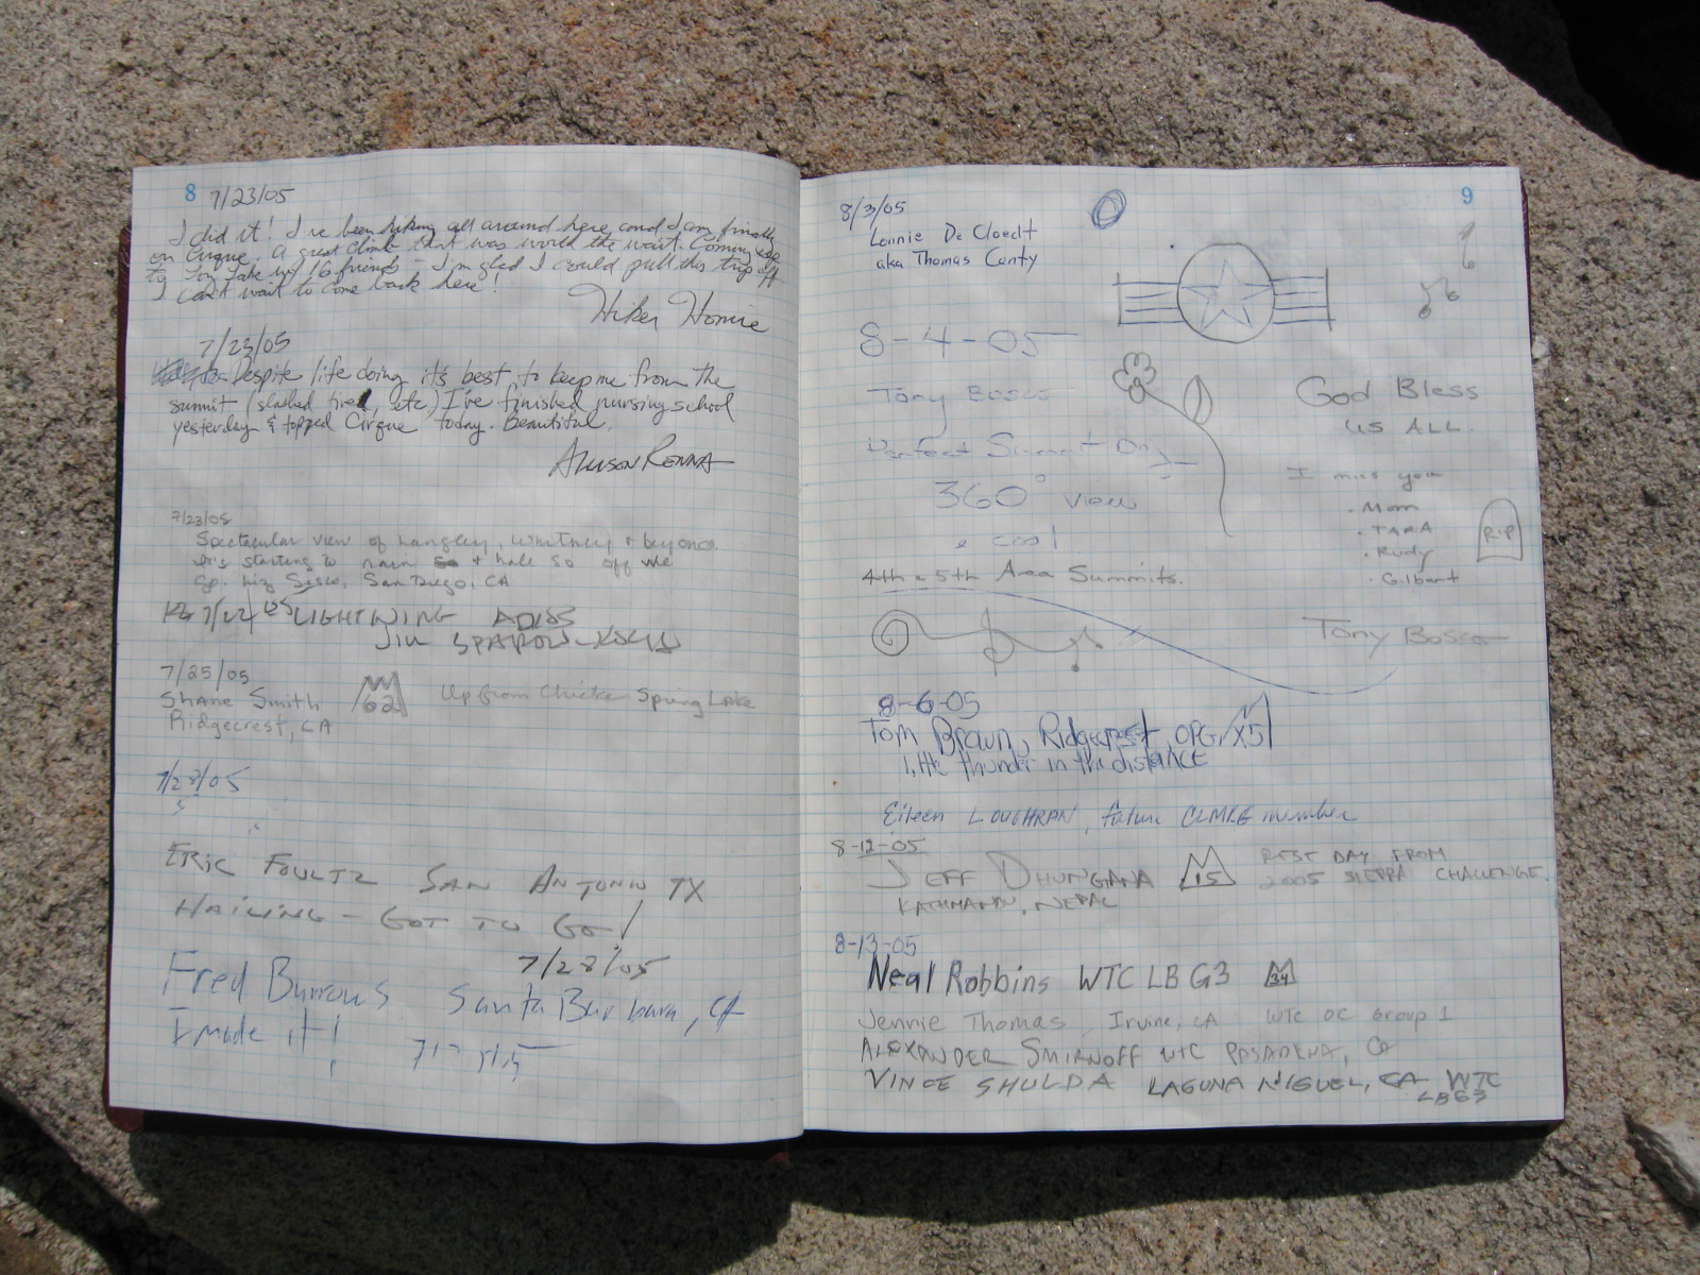 8 7/23/05
I did it! I've been hiking all around here and I am finally
on Cirque. A great climb that was worth the wait. Coming
to you take my 16 friends - I'm glad I could pull this trip off
I can't wait to come back here!
Hiker Homie
7/23/05
Despite life doing it's best to keep me from the
summit (slashed tire, etc) I've finished nursing school
yesterday & topped Cirque today. Beautiful.
Allison Renna
7/23/05
Spectacular view of Langley, Whitney & beyond.
It's starting to rain & hale so off we
go. Liz Sisco, San Diego, CA
7/24/05 LIGHTNING ADIOS
JIM SPAROWSKY
7/25/05
Shane Smith 62 Up from Chicken Spring Lake
Ridgecrest, CA
7/28/05
ERIC FOULTZ SAN ANTONIO TX
HAILING - GOT TO GO!
7/28/05
Fred Burrows Santa Barbara, CA
I made it!
9
8/3/05
Lonnie De Cloedt
aka Thomas Canty
8-4-05
Tony Bosco
Perfect Summit Day
360° view
cool
4th & 5th Area Summits.
God Bless
US ALL.
I miss you
. Mom
. TARA
. Rudy
. Gilbert
RIP
Tony Bosco
8-6-05
Tom Brown, Ridgecrest, OPG X5
little thunder in the distance
Eileen LOUGHRAN, future CLMRG member
8-12-05
JEFF DHUNGANA 15 REST DAY FROM
2005 SIERRA CHALLENGE.
KATHMANDU, NEPAL
8-13-05
Neal Robbins WTC LB G3 34
Jennie Thomas, Irvine, CA WTC OC Group 1
ALEXANDER SMIRNOFF WTC PASADENA, CA
VINCE SHULDA LAGUNA NIGUEL, CA WTC
LBG3